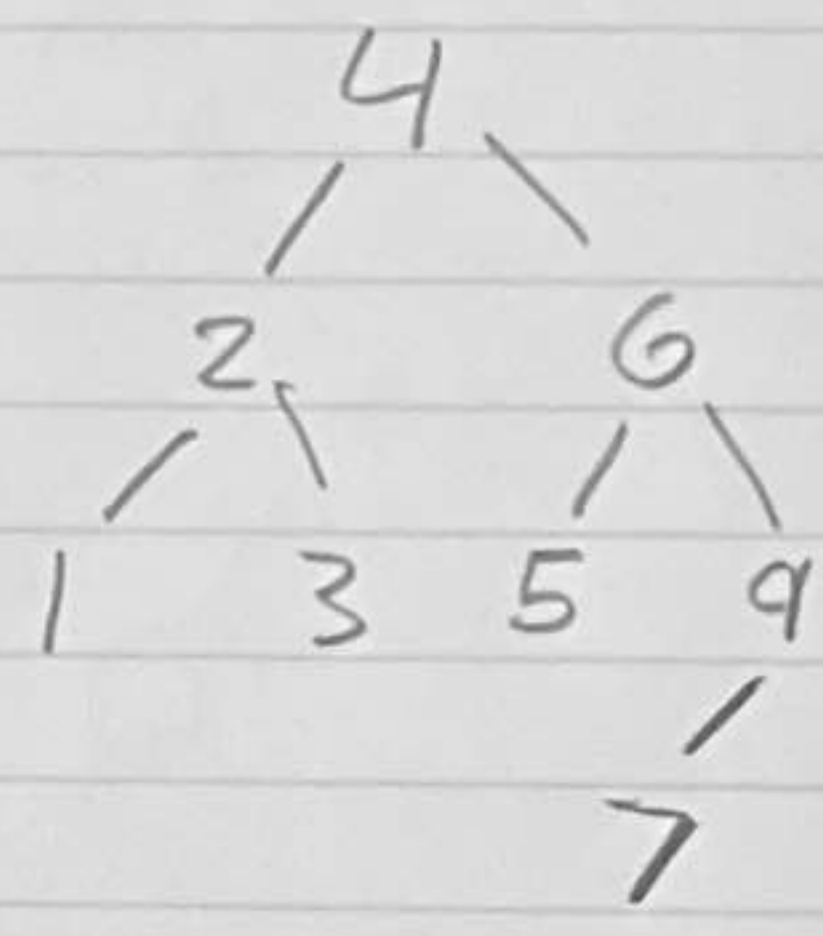 4
2 6
1 3 5 9
7